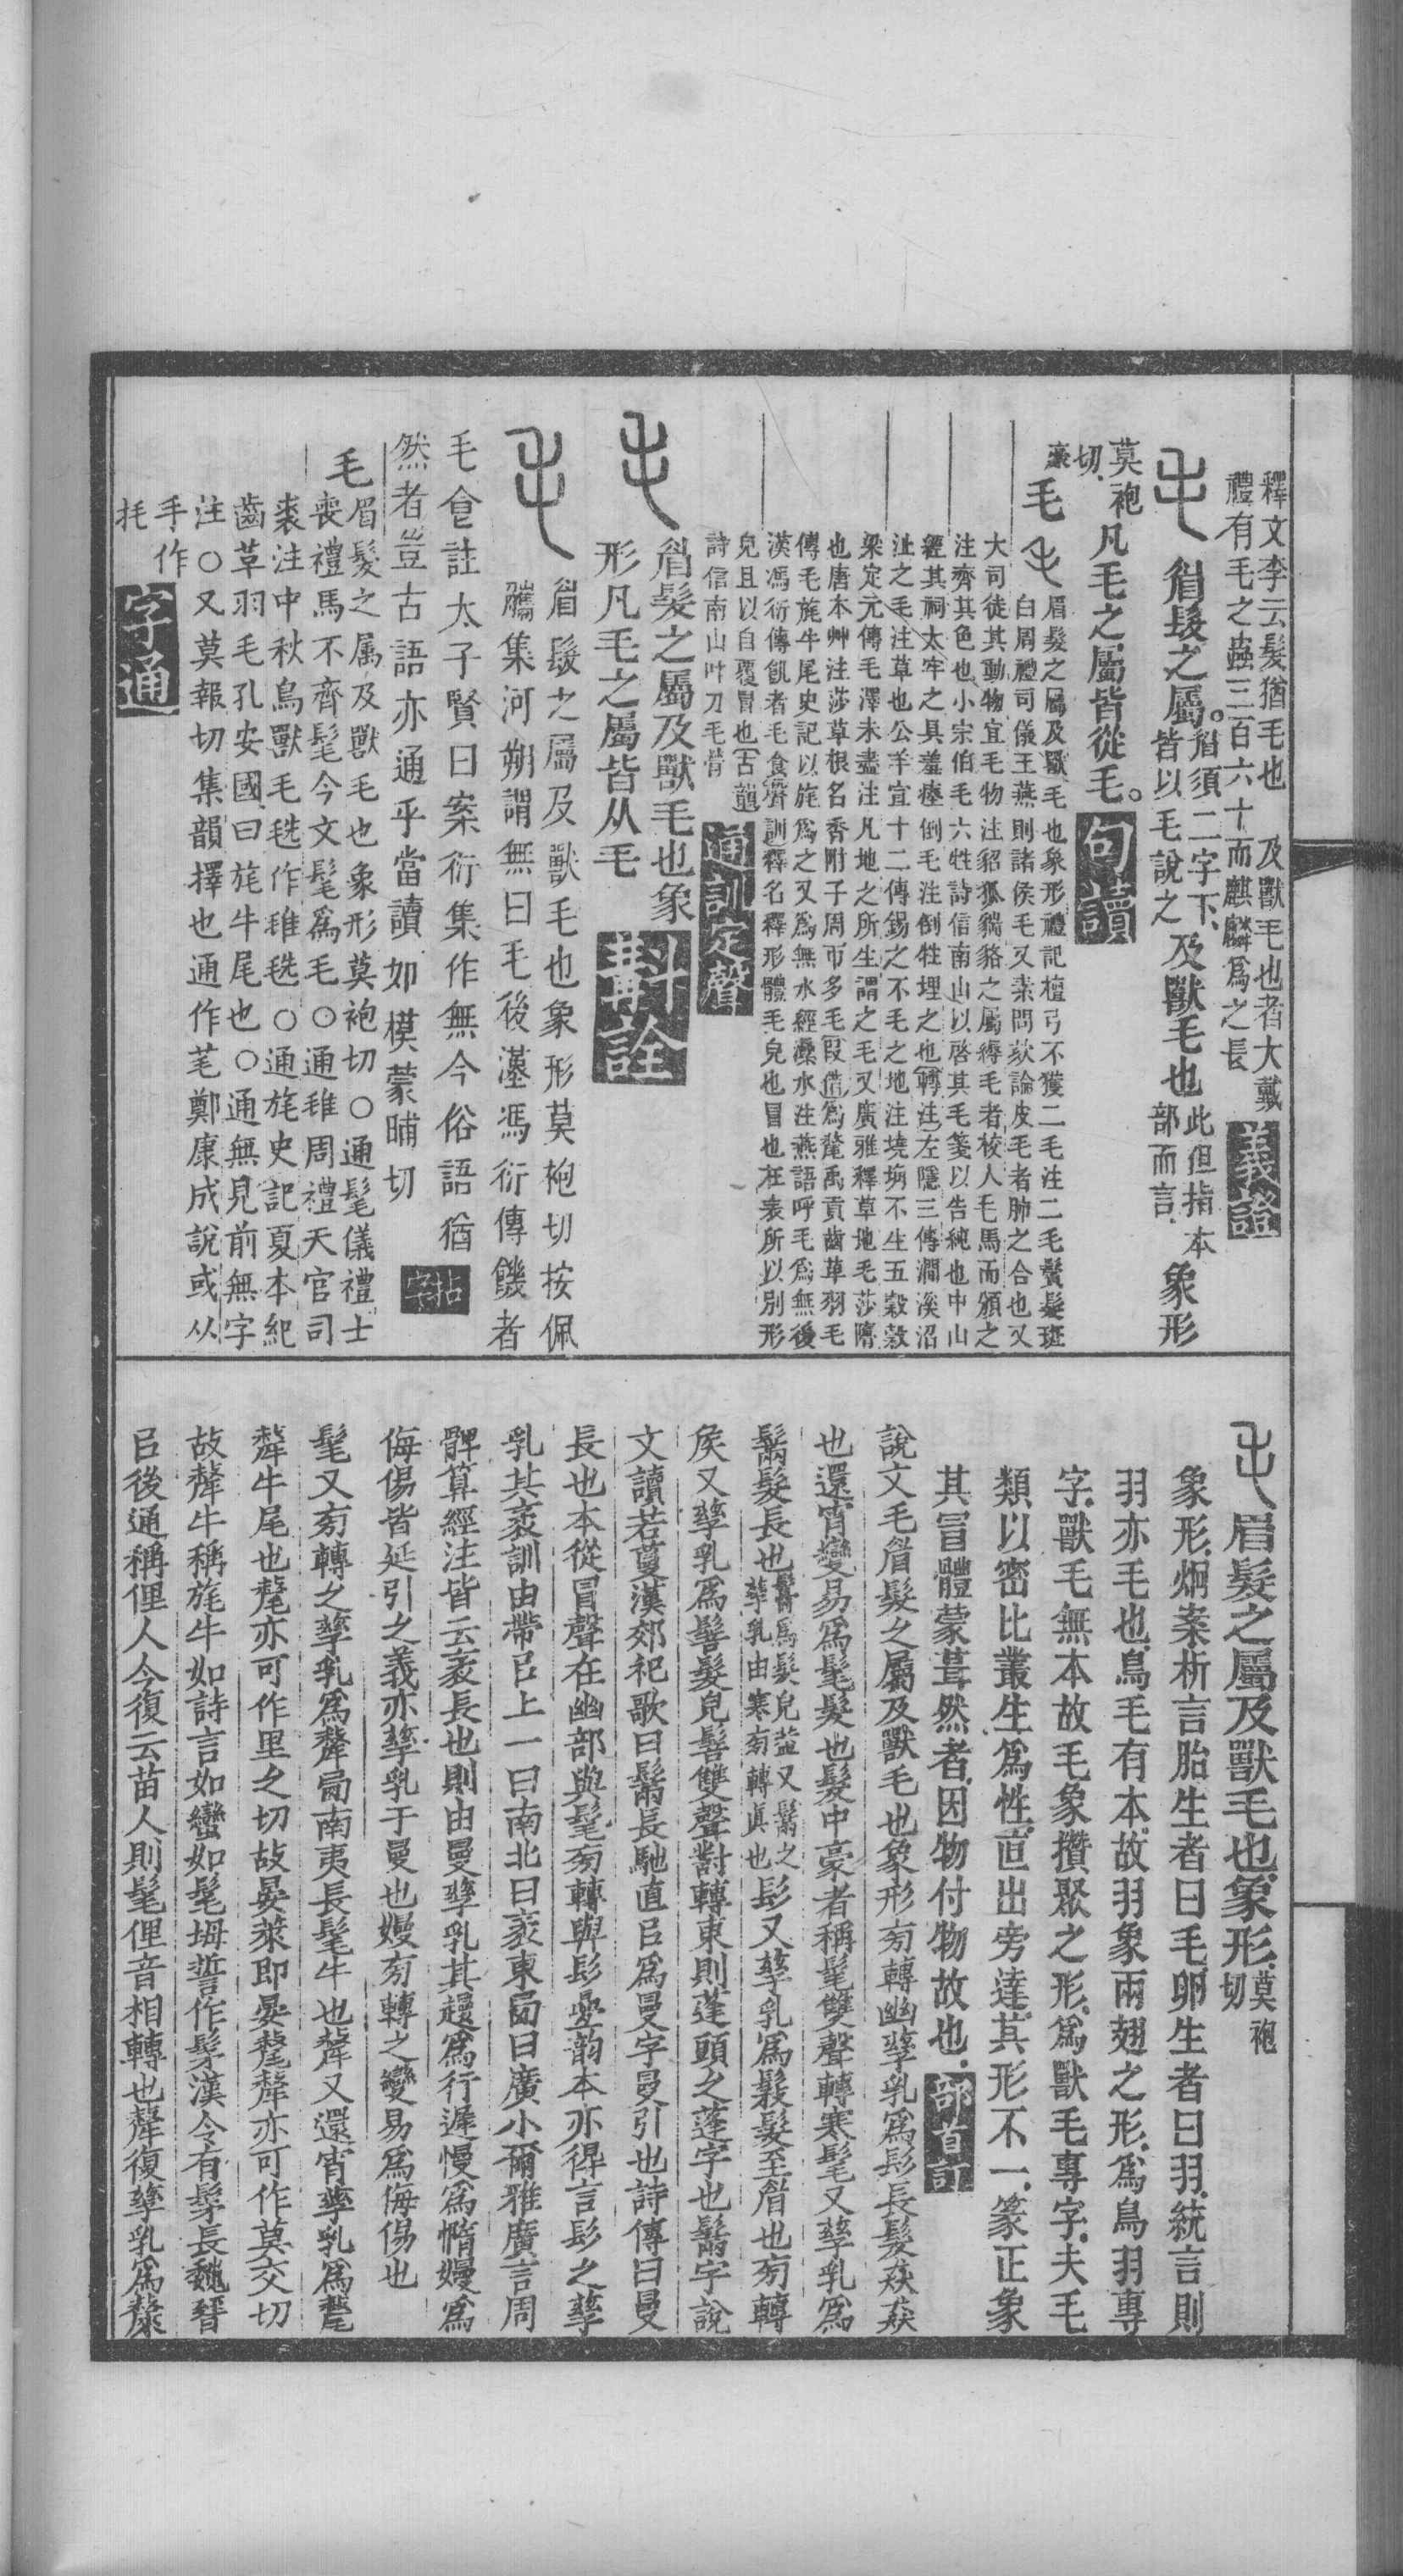 釋文李云髮猶毛也　及獸毛也者大戴
禮有毛之蟲三百六十而麒麟爲之長
義證
眉髮之屬。
眉須二字下、
皆以毛說之
及獸毛也
此但指本
部而言、
象形
莫袍
切、
凡毛之屬皆從毛。
句讀
豪
毛
眉髮之屬及獸毛也象形禮記檀弓不獲二毛注二毛鬢髮斑
白周禮司儀王燕則諸侯毛又素問欬論皮毛者肺之合也又
大司徒其動物宜毛物注貂狐貒貉之屬縟毛者校人毛馬而頒之
注齊其色也小宗伯毛六牲詩信南山以啓其毛箋以告純也中山
經其祠太牢之具羞瘞倒毛注倒牲埋之也轉注左隱三傳澗溪沼
沚之毛注草也公羊宣十二傳錫之不毛之地注墝埆不生五穀穀
梁定元傳毛澤未盡注凡地之所生謂之毛又廣雅釋草地毛莎隋
也唐本艸注莎草根名香附子周帀多毛叚借爲氂禹貢齒革羽毛
傳毛旄牛尾史記以旄爲之又爲無水經㶟水注燕語呼毛爲無後
漢馮衍傳飢者毛食聲訓釋名釋形體毛皃也冒也在表所以別形
皃且以自覆冒也古韻
詩信南山叶刀毛膋
通訓定聲
眉髮之屬及獸毛也象
形凡毛之屬皆从毛
斠詮
眉髮之屬及獸毛也象形莫袍切按佩
觿集河朔謂無曰毛後漢馮衍傳饑者
毛食註太子賢曰案衍集作無今俗語猶
然者豈古語亦通乎當讀如模蒙晡切
拈字
毛
眉髮之屬及獸毛也象形莫袍切○通髦儀禮士
喪禮馬不齊髦今文髦爲毛○通毴周禮天官司
裘注中秋鳥獸毛毨作毴毨○通旄史記夏本紀
齒革羽毛孔安國曰旄牛尾也○通無見前無字
注○又莫報切集韻擇也通作芼鄭康成說或从
手作
㧌
字通
眉髮之屬及獸毛也象形、
莫袍
切
象形、炯案析言胎生者曰毛、卵生者曰羽、統言則
羽亦毛也、鳥毛有本、故羽象兩翅之形、爲鳥羽專
字、獸毛無本故毛象攢聚之形、爲獸毛專字、夫毛
類以密比叢生爲性、直出旁達、其形不一、篆正象
其冒體蒙葺然者、因物付物故也、
部首訂
說文毛眉髮之屬及獸毛也象形㫄轉幽孳乳爲髟長髮猋猋
也還宵變易爲髦髮也髮中豪者稱髦雙聲轉寒髦又孳乳爲
鬗髮長也
鬘爲髮皃葢又鬗之
孳乳由寒㫄轉眞也
髟又孳乳爲髳髮至眉也㫄轉
矦又孳乳爲髻髮皃髻雙聲對轉東則蓬頭之蓬字也鬗字說
文讀若蔓漢郊祀歌曰鬗長馳直㠯爲曼字曼引也詩傳曰曼
長也本從冒聲在幽部與髦㫄轉與髟疊韵本亦得言髟之孳
乳其袤訓由帶㠯上一曰南北曰袤東㢴曰廣小爾雅廣言周
髀算經注皆云袤長也則由曼孳乳其趨爲行遲慢爲惰嫚爲
侮傷皆延引之義亦孳乳于曼也嫚㫄轉之變易爲侮傷也
髦又㫄轉之孳乳爲犛㢴南夷長髦牛也犛又還宵孳乳爲氂
犛牛尾也氂亦可作里之切故晏萊即晏氂犛亦可作莫交切
故犛牛稱旄牛如詩言如蠻如髦坶誓作髳漢令有髳長魏晉
㠯後通稱俚人今復云苗人則髦俚音相轉也犛復孳乳爲斄